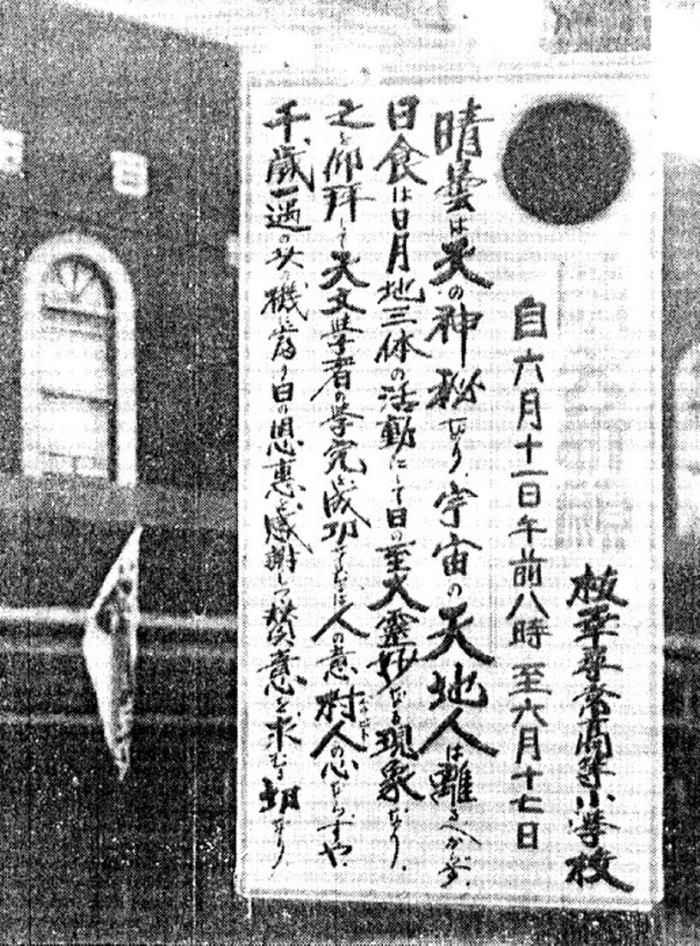 枝幸尋常高等小学校
自六月十一日午前八時 至六月十七日
晴曇は天の神秘なり、宇宙の天地人は離るべからず、
日食は日月地三体の活動にして日の至大霊妙なる現象なり、
之を仰拝して天文学者の学究を成功せしむるは人の意 村人の心ならずや、
千歳一遇の此の機に当り日の恩恵を感謝して賛意を求むる切なり